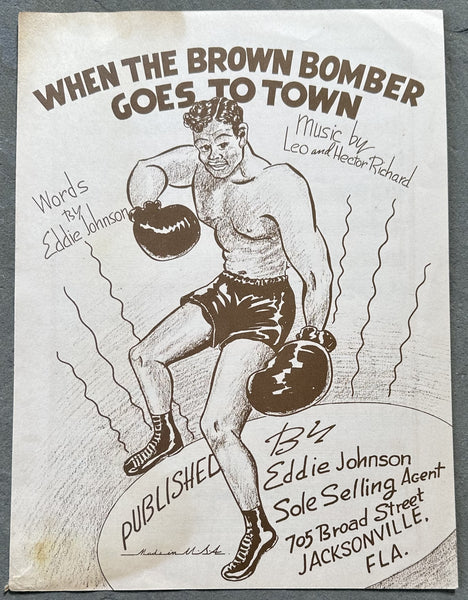 WHEN THE BROWN BOMBER
GOES TO TOWN
Music by
Leo and Hector Richard
Words
By
Eddie Johnson
PUBLISHED
By
Eddie Johnson
Sole Selling Agent
705 Broad Street
JACKSONVILLE,
FLA.
Made in U.S.A.